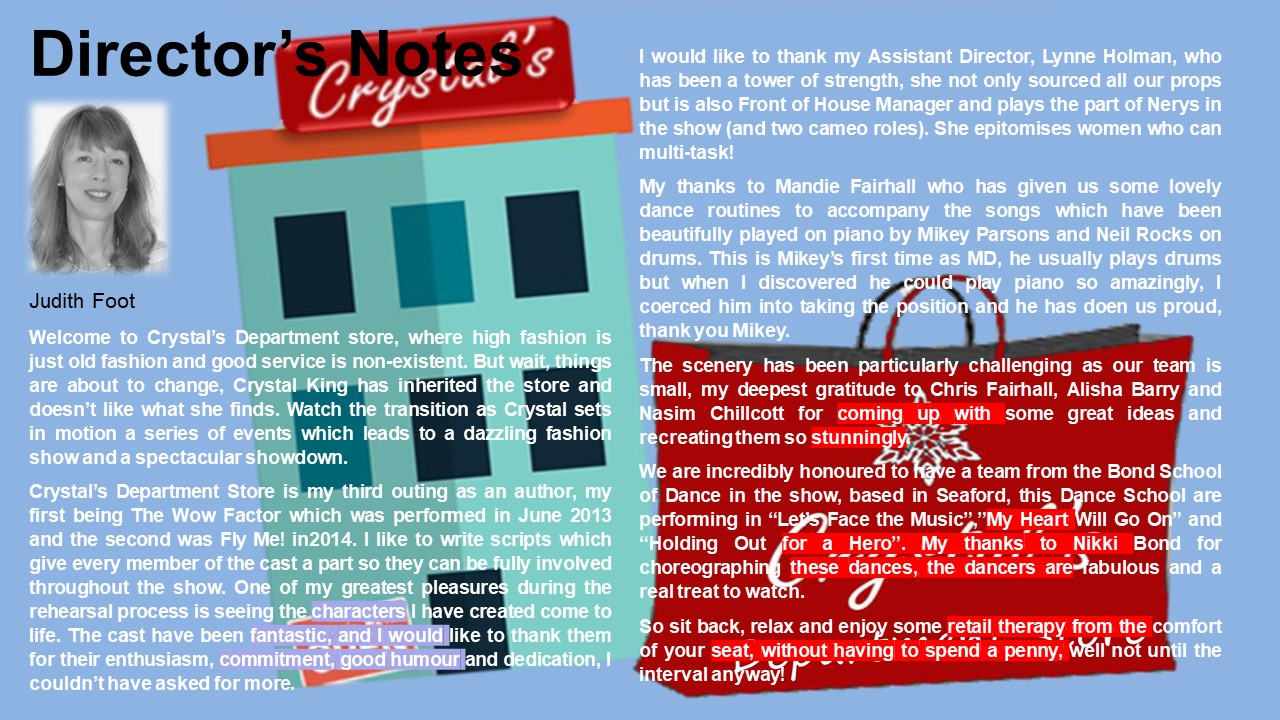 Director's Notes
Crystal's
Judith Foot
Welcome to Crystal's Department store, where high fashion is
just old fashion and good service is non-existent. But wait, things
are about to change, Crystal King has inherited the store and
doesn't like what she finds. Watch the transition as Crystal sets
in motion a series of events which leads to a dazzling fashion
show and a spectacular showdown.
Crystal's Department Store is my third outing as an author, my
first being The Wow Factor which was performed in June 2013
and the second was Fly Me! in2014. I like to write scripts which
give every member of the cast a part so they can be fully involved
throughout the show. One of my greatest pleasures during the
rehearsal process is seeing the characters I have created come to
life. The cast have been fantastic, and I would like to thank them
for their enthusiasm, commitment, good humour and dedication, I
couldn't have asked for more.
I would like to thank my Assistant Director, Lynne Holman, who
has been a tower of strength, she not only sourced all our props
but is also Front of House Manager and plays the part of Nerys in
the show (and two cameo roles). She epitomises women who can
multi-task!
My thanks to Mandie Fairhall who has given us some lovely
dance routines to accompany the songs which have been
beautifully played on piano by Mikey Parsons and Neil Rocks on
drums. This is Mikey's first time as MD, he usually plays drums
but when I discovered he could play piano so amazingly, I
coerced him into taking the position and he has doen us proud,
thank you Mikey.
The scenery has been particularly challenging as our team is
small, my deepest gratitude to Chris Fairhall, Alisha Barry and
Nasim Chillcott for coming up with some great ideas and
recreating them so stunningly.
We are incredibly honoured to have a team from the Bond School
of Dance in the show, based in Seaford, this Dance School are
performing in “Let's Face the Music”,”My Heart Will Go On” and
“Holding Out for a Hero”. My thanks to Nikki Bond for
choreographing these dances, the dancers are fabulous and a
real treat to watch.
So sit back, relax and enjoy some retail therapy from the comfort
of your seat, without having to spend a penny, well not until the
interval anyway!
Crystal's
Department Store